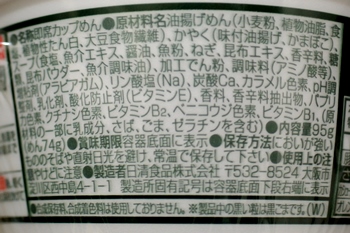 ●名称即席カップめん●原材料名油揚げめん(小麦粉、植物油脂、
食塩、植物性たん白、大豆食物繊維)、かやく(味付油揚げ、かまぼこ)、
スープ(食塩、魚介エキス、醤油、魚粉、ねぎ、昆布エキス、香辛料、
昆布パウダー、魚介調味油)、加工でん粉、調味料(アミノ酸等)、
(アラビアガム)、リン酸塩(Na)、炭酸Ca、カラメル色素、pH調
整剤、乳化剤、酸化防止剤(ビタミンE)、香料、香辛料抽出物、パプリ
カ色素、クチナシ色素、ビタミンB2、ベニコウジ色素、ビタミンB1、(原材
料の一部に乳成分、さば、ごま、ゼラチンを含む)●内容量95g
(めん74g)●賞味期限容器底面に表示●保存方法においが強い
もののそばや直射日光を避け、常温で保存して下さい●使用上の注
意やけどに注意●製造者日清食品株式会社 〒532-8524 大阪市
淀川区西中島4-1-1 製造所固有記号は容器底面下段右端に表示
●合成保存料、合成着色料は使用しておりません。※製品中の黒い粒は黒ごまです。(W)